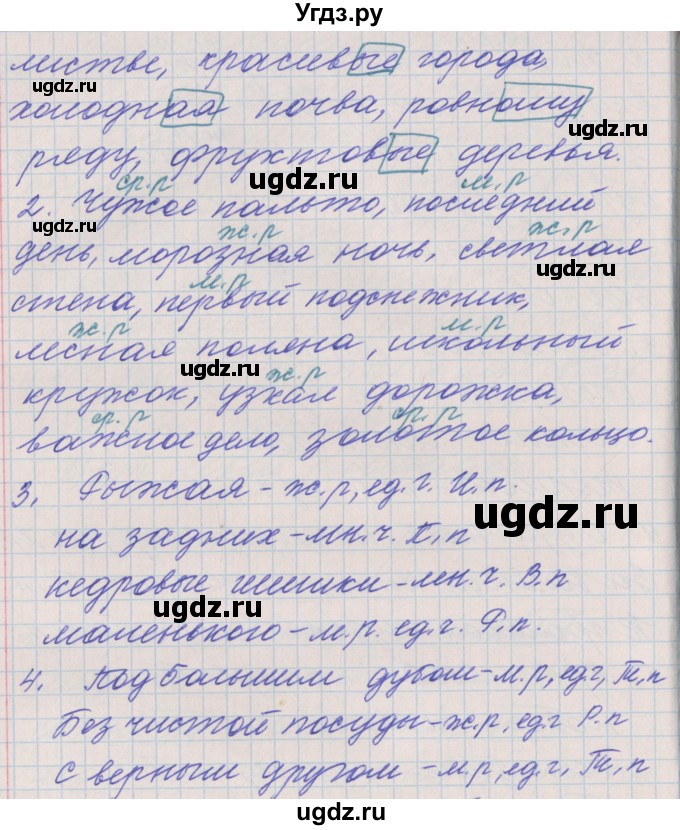 Угдз.ру
листве, красивые города
холодная почва, ровному
ugdz.ru
ряду, фруктовые деревья.
ugdz.ru
ср.р м.р
2. Чужое пальто, последний
ugdz.ru
ж.р ж.р
день, морозная ночь, светлая
ugdz.ru
м.р
стена, первый подснежник,
ж.р м.р
лесная поляна, школьный
ugdz.ru
ж.р
кружок, узкая дорожка,
ср.р ср.р
важное дело, золотое кольцо.
3. Рыжая - ж.р, ед.ч. И.п.
ugdz.ru
на задних - мн.ч. П.п
кедровые шишки - мн.ч. В.п
ugdz.ru
маленького - м.р. ед.ч. Р.п.
4. Под большим дубом - м.р, ед.ч, Т.п
ugdz.ru
Без чистой посуды - ж.р, ед.ч Р.п
с верным другом - м.р, ед.ч, Т.п
ugdz.ru